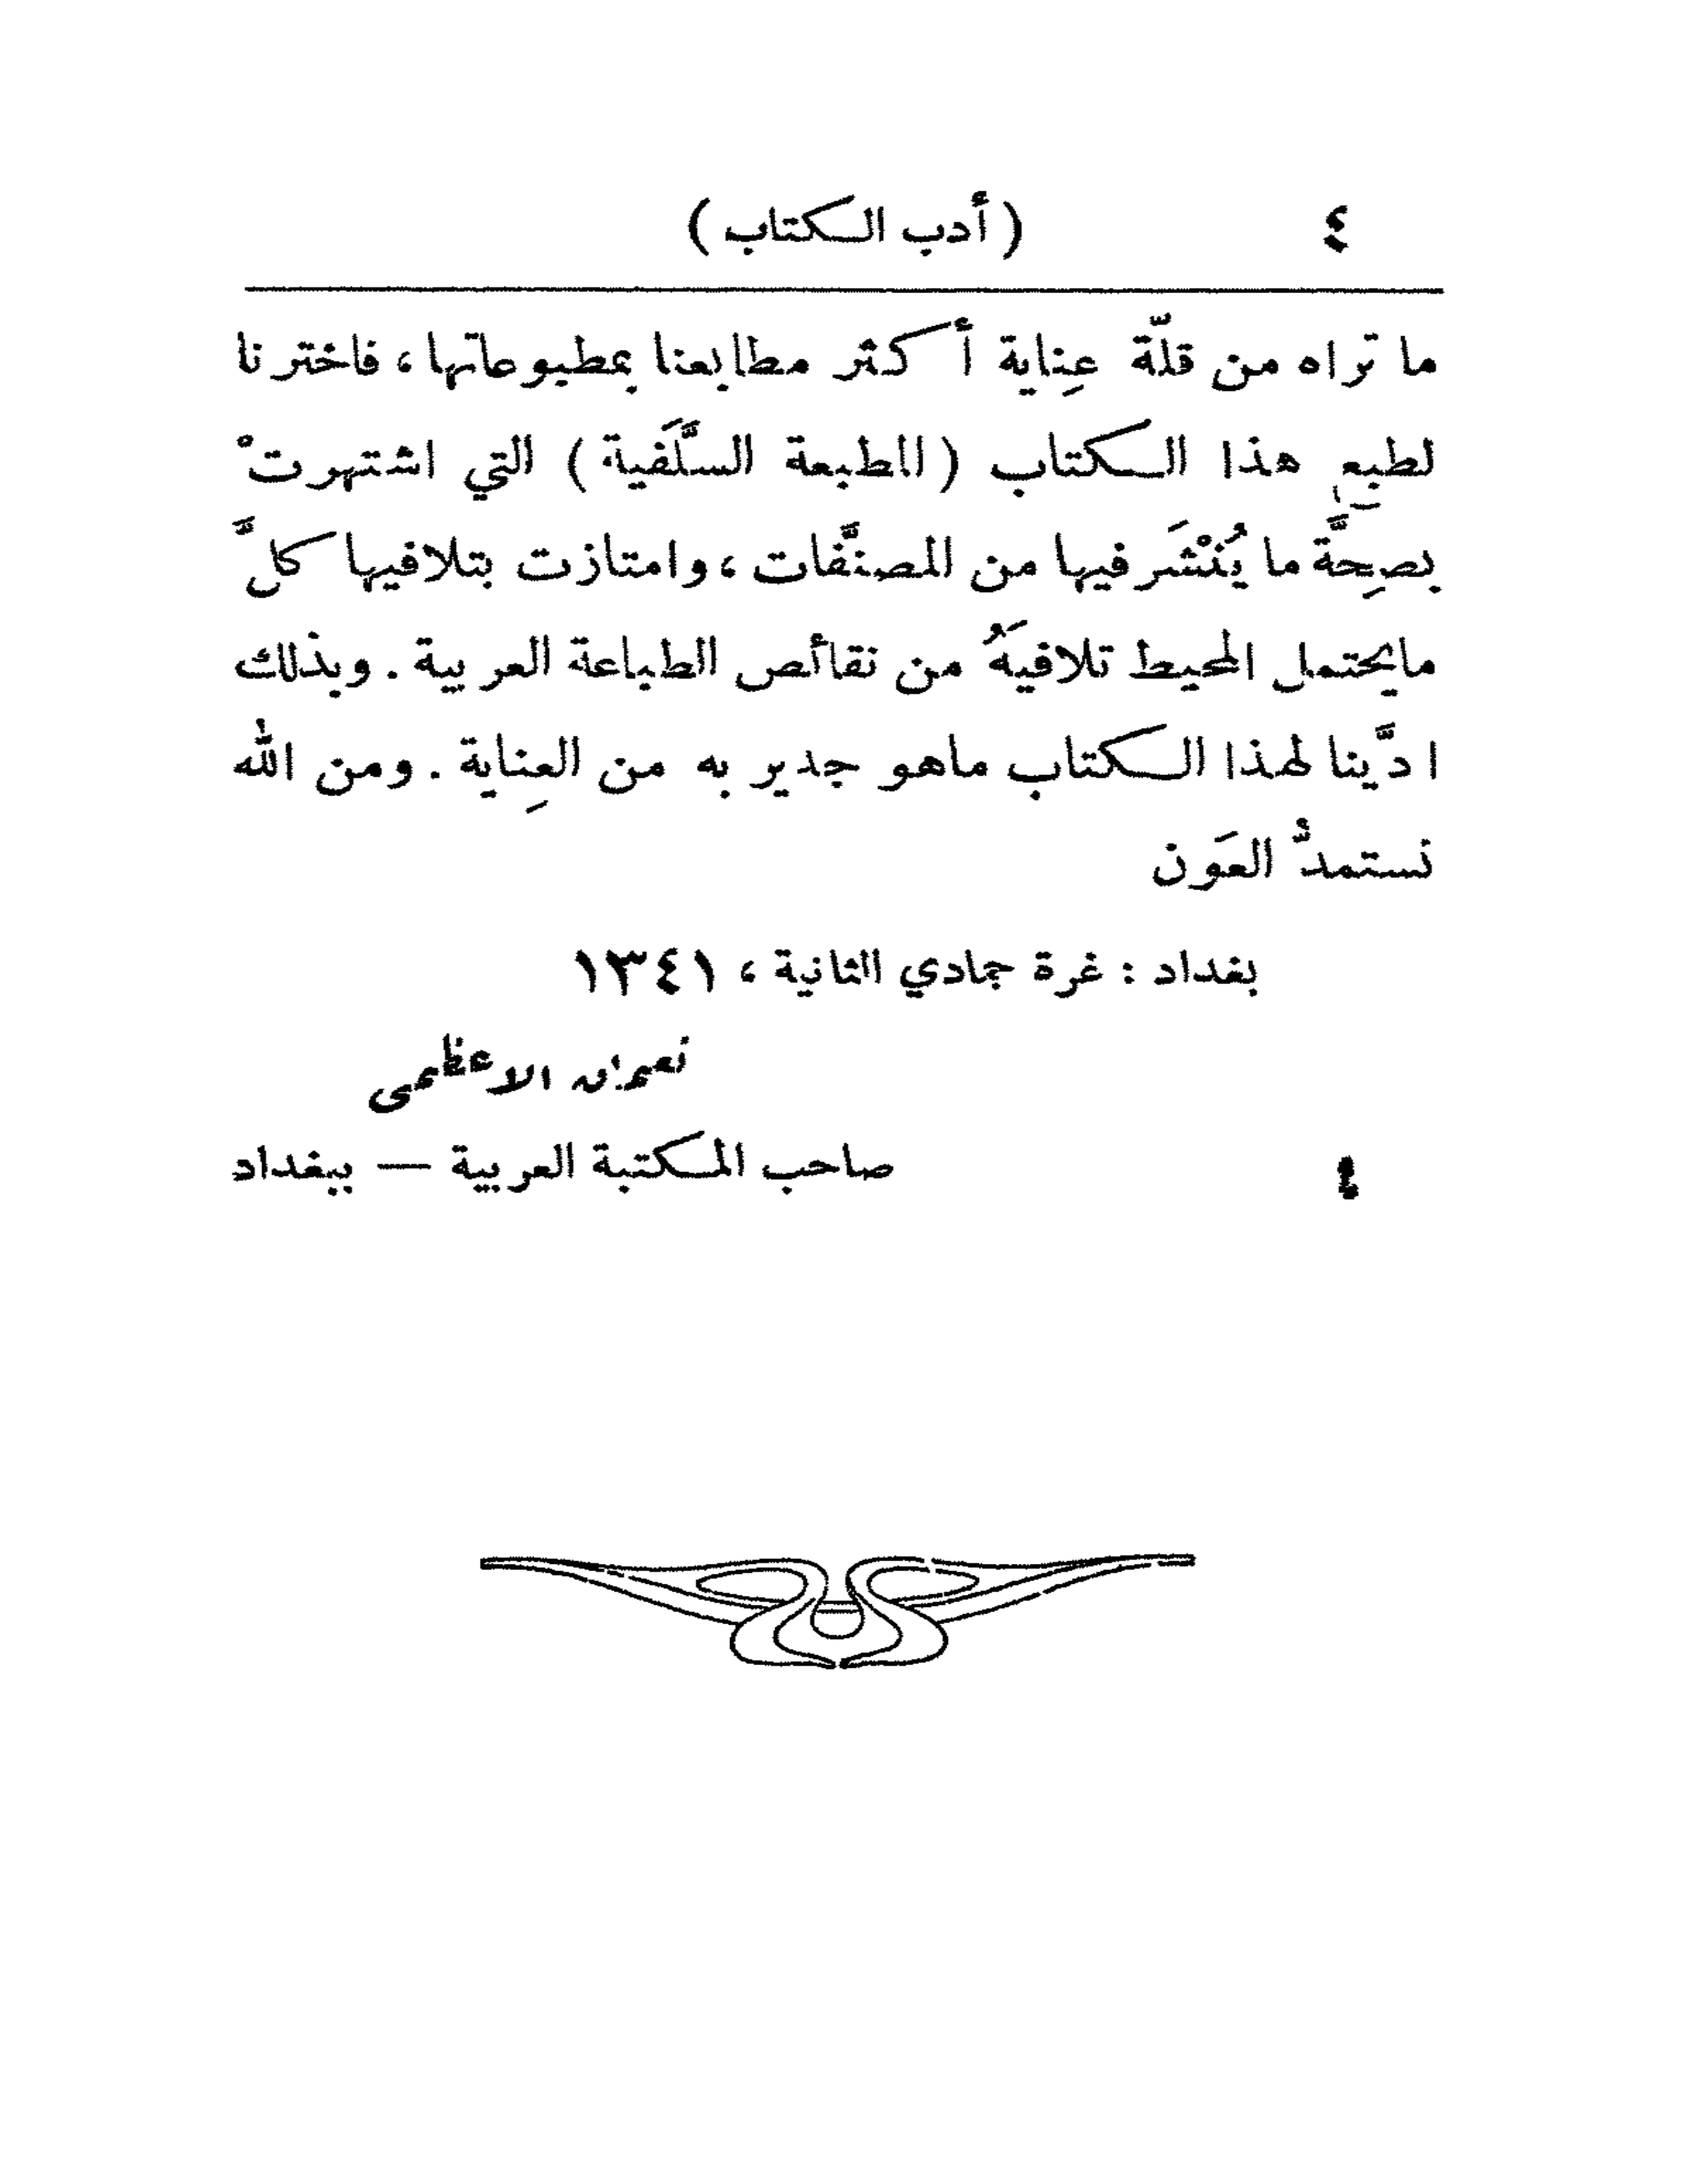 ٤ ( أدب الكتاب )
ما تراه من قلّة عِناية أكثر مطابعنا بمطبوعاتها ، فاخترنا
لطبع هذا الكتاب ( المطبعة السَّلَفية ) التي اشتهرتْ
بصِحَّة ما يُنْشَر فيها من المصنَّفات ، وامتازت بتلافيها كلَّ
مايحتمل المحيط تلافيَهُ من نقائص الطباعة العربية . وبذلك
ادَّينا لهذا الكتاب ماهو جدير به من العِناية . ومن الله
نستمدُّ العَون
بغداد : غرة جمادي الثانية ، ١٣٤١
نعمان الاعظمى
صاحب المكتبة العربية — ببغداد